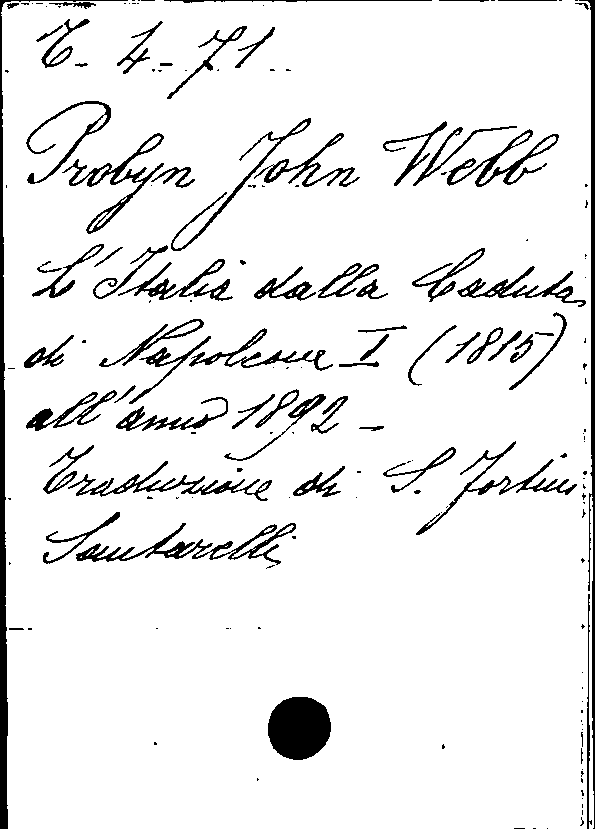 T-4-71
Probyn John Webb
L'Italia dalla Caduta
di Napoleone I (1815)
all'anno 1892 -
Traduzione di S. Fortini
Santarelli